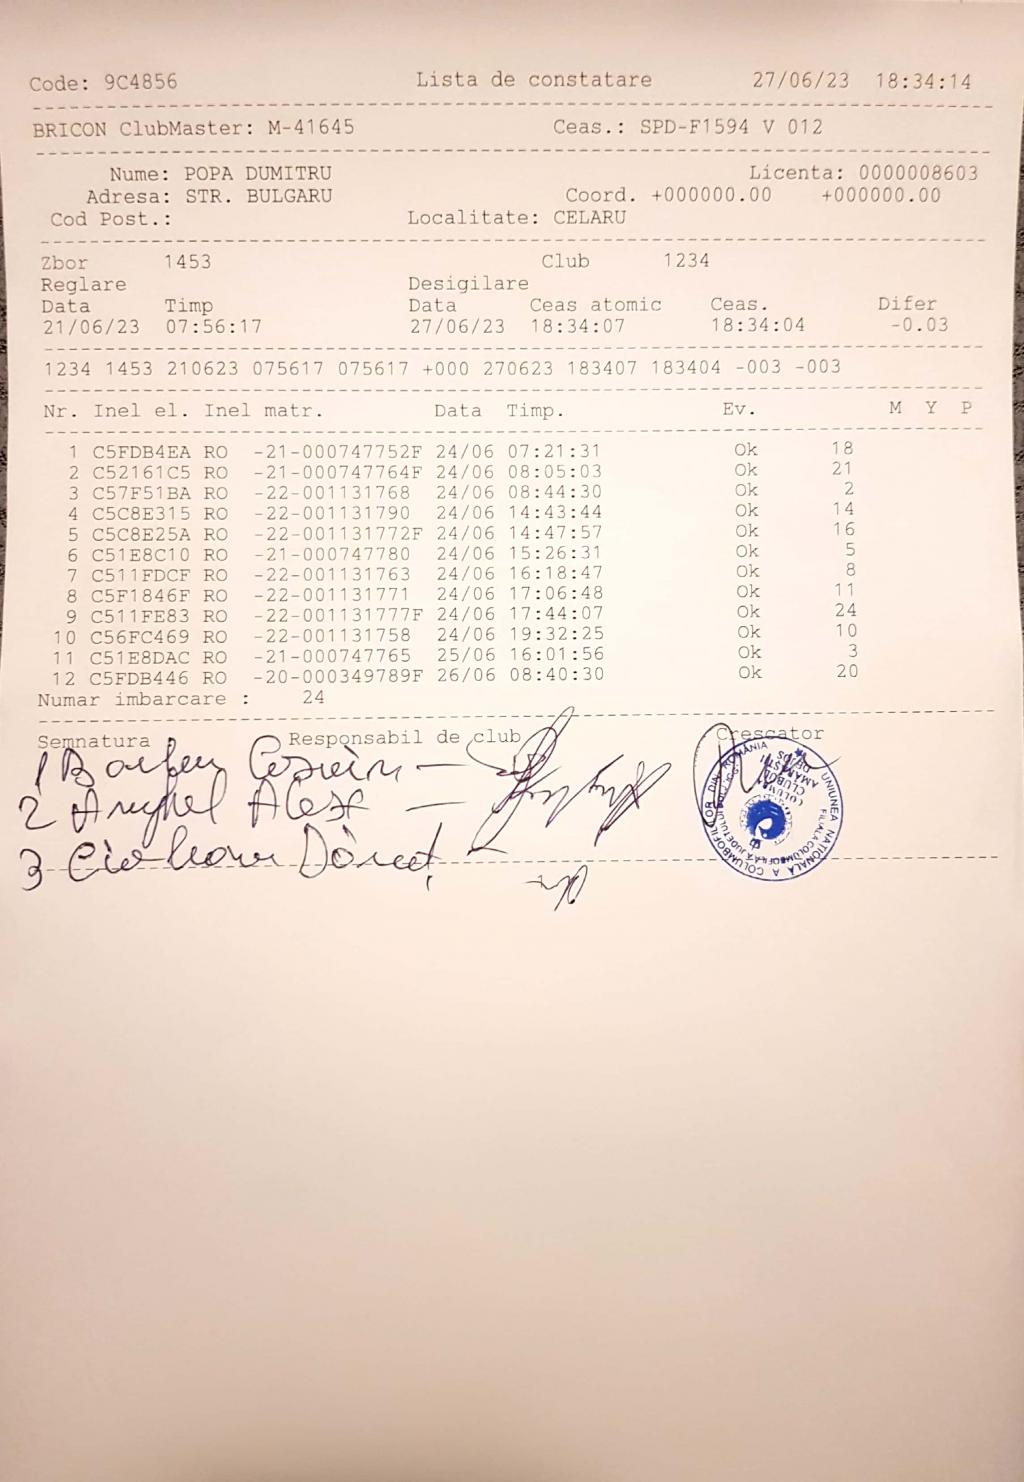 Code: 9C4856 Lista de constatare 27/06/23 18:34:14
BRICON ClubMaster: M-41645 Ceas.: SPD-F1594 V 012
Nume: POPA DUMITRU Licenta: 0000008603
Adresa: STR. BULGARU Coord. +000000.00 +000000.00
Cod Post.: Localitate: CELARU
Zbor 1453 Club 1234
Reglare Desigilare
Data Timp Data Ceas atomic Ceas. Difer
21/06/23 07:56:17 27/06/23 18:34:07 18:34:04 -0.03
1234 1453 210623 075617 075617 +000 270623 183407 183404 -003 -003
Nr. Inel el. Inel matr. Data Timp. Ev. M Y P
1 C5FDB4EA RO -21-000747752F 24/06 07:21:31 Ok 18
2 C52161C5 RO -21-000747764F 24/06 08:05:03 Ok 21
3 C57F51BA RO -22-001131768 24/06 08:44:30 Ok 2
4 C5C8E315 RO -22-001131790 24/06 14:43:44 Ok 14
5 C5C8E25A RO -22-001131772F 24/06 14:47:57 Ok 16
6 C51E8C10 RO -21-000747780 24/06 15:26:31 Ok 5
7 C511FDCF RO -22-001131763 24/06 16:18:47 Ok 8
8 C5F1846F RO -22-001131771 24/06 17:06:48 Ok 11
9 C511FE83 RO -22-001131777F 24/06 17:44:07 Ok 24
10 C56FC469 RO -22-001131758 24/06 19:32:25 Ok 10
11 C51E8DAC RO -21-000747765 25/06 16:01:56 Ok 3
12 C5FDB446 RO -20-000349789F 26/06 08:40:30 Ok 20
Numar imbarcare : 24
Semnatura Responsabil de club Crescator
1
2 Anghel Alex
3
UNIUNEA NAȚIONALĂ A COLUMBOFILILOR DIN ROMÂNIA